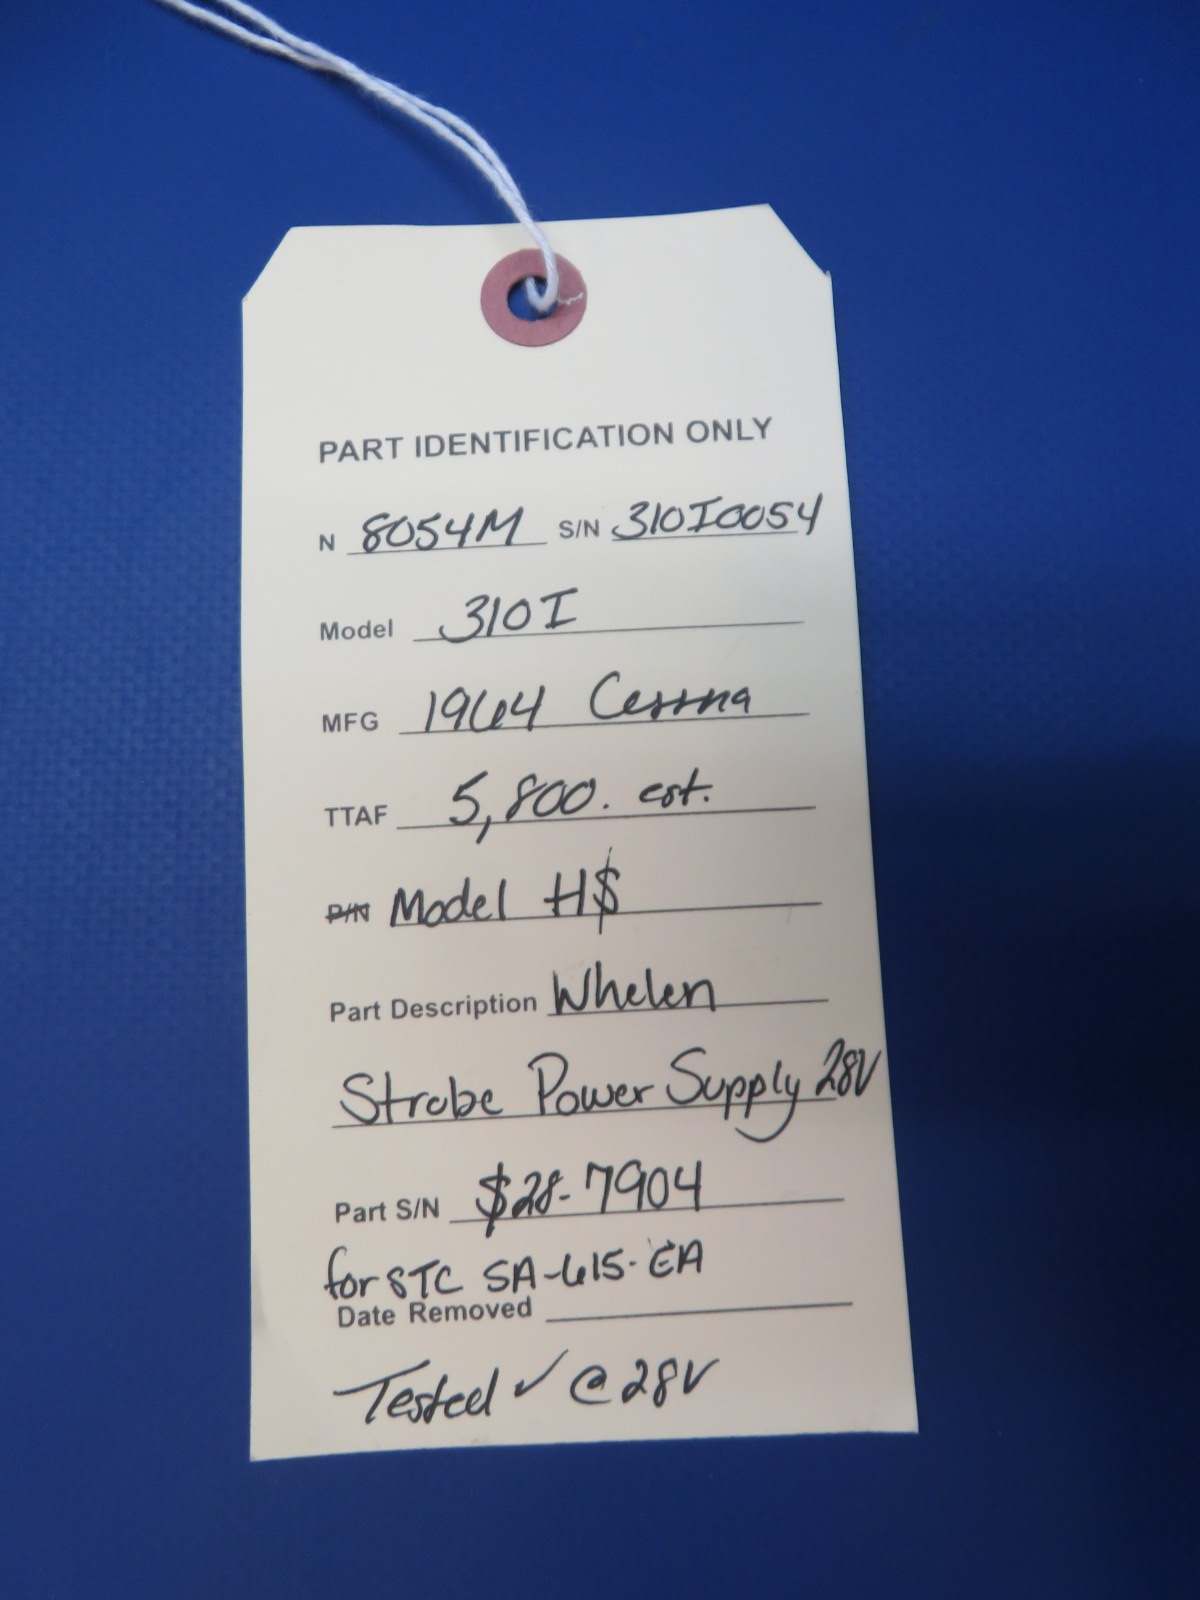 PART IDENTIFICATION ONLY
N 8054M S/N 310I0054
Model 310I
MFG 1964 Cessna
TTAF 5,800. est.
P/N Model H$
Part Description Whelen
Strobe Power Supply 28V
Part S/N $28-7904
for STC SA-615-EA
Date Removed
Tested ✓ @ 28V